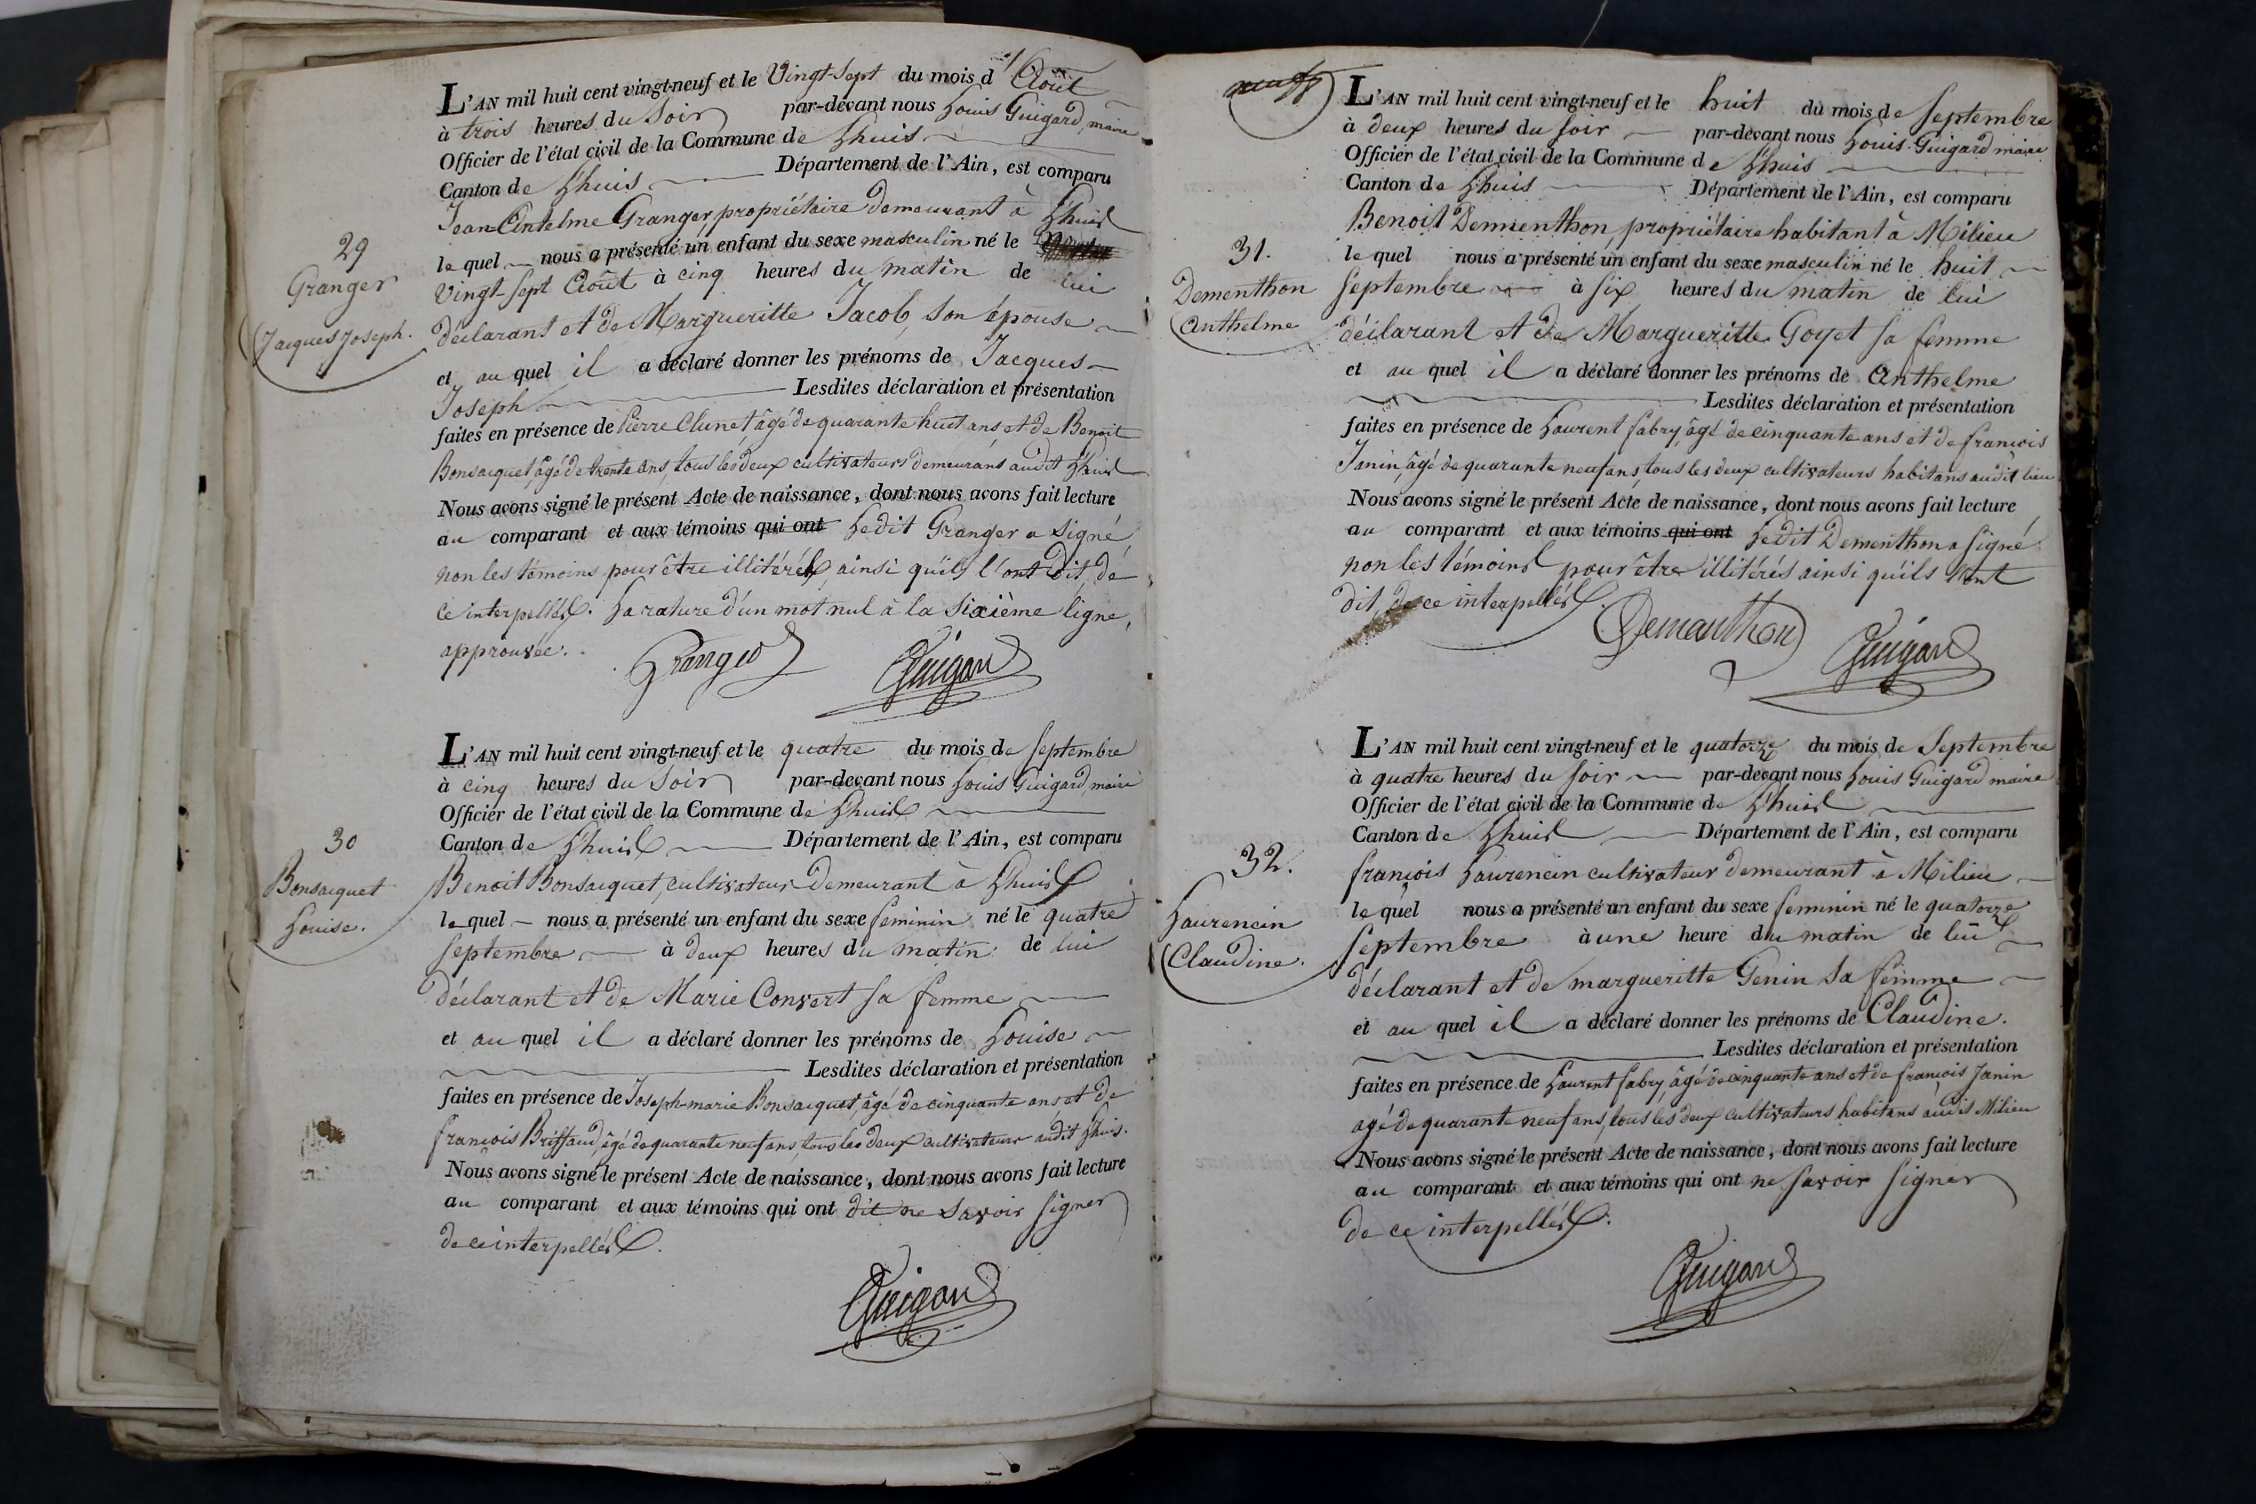 L'AN mil huit cent vingt-neuf et le Vingt-Sept du mois d'Août
à trois heures du Soir par-devant nous Louis Guigard, maire
Officier de l'état civil de la Commune de Lhuis
Canton de Lhuis Département de l'Ain, est comparu
Jean Antelme Granger, propriétaire demeurant à Lhuis
29
Granger
Jacques Joseph.
le quel nous a présenté un enfant du sexe masculin né le
Vingt-sept Août à cinq heures du matin de lui
déclarant et de Margueritte Jacob, son épouse
et au quel il a déclaré donner les prénoms de Jacques
Joseph Lesdites déclaration et présentation
faites en présence de Pierre Clunet âgé de quarante huit ans, et de Benoit
Bonsacquet, âgé de trente ans, tous les deux cultivateurs demeurans audit Lhuis
Nous avons signé le présent Acte de naissance, dont nous avons fait lecture
au comparant et aux témoins qui ont Ledit Granger a Signé
non les témoins pour être illitérés, ainsi qu'ils l'ont dit, de
ce interpellés. La rature d'un mot nul à la Sixième ligne,
approuvée.
Granger Guigard
L'AN mil huit cent vingt-neuf et le quatre du mois de Septembre
à cinq heures du Soir par-devant nous Louis Guigard, maire
Officier de l'état civil de la Commune de Lhuis
Canton de Lhuis Département de l'Ain, est comparu
30
Bonsacquet
Louise.
Benoit Bonsacquet, cultivateur demeurant à Lhuis
le quel nous a présenté un enfant du sexe feminin né le quatre
Septembre à deux heures du matin de lui
déclarant et de Marie Convert sa femme
et au quel il a déclaré donner les prénoms de Louise
Lesdites déclaration et présentation
faites en présence de Joseph-marie Bonsacquet, âgé de cinquante ans et de
françois Briffaud, âgé de quarante neuf ans, tous les deux cultivateurs audit Lhuis.
Nous avons signé le présent Acte de naissance, dont nous avons fait lecture
au comparant et aux témoins qui ont dit ne Savoir Signer
de ce interpellés.
Guigard
neuf
L'AN mil huit cent vingt-neuf et le huit du mois de Septembre
à deux heures du soir par-devant nous Louis Guigard maire
Officier de l'état civil de la Commune de Lhuis
Canton de Lhuis Département de l'Ain, est comparu
Benoit Dementhon, propriétaire habitant à Milieu
31.
Dementhon
Anthelme
le quel nous a présenté un enfant du sexe masculin né le huit
Septembre à six heures du matin de lui
déclarant et de Margueritte Goyet sa femme
et au quel il a déclaré donner les prénoms de Anthelme
Lesdites déclaration et présentation
faites en présence de Laurent fabry, âgé de cinquante ans et de françois
Janin, âgé de quarante neuf ans, tous les deux cultivateurs habitans audit lieu
Nous avons signé le présent Acte de naissance, dont nous avons fait lecture
au comparant et aux témoins qui ont Ledit Dementhon a signé
non les témoins pour être illitérés ainsi qu'ils l'ont
dit, de ce interpellés.
Demanthon Guigard
L'AN mil huit cent vingt-neuf et le quatorze du mois de Septembre
à quatre heures du soir par-devant nous Louis Guigard maire
Officier de l'état civil de la Commune de Lhuis
Canton de Lhuis Département de l'Ain, est comparu
32.
Laurencin
Claudine.
françois Laurencin cultivateur demeurant à Milieu
le quel nous a présenté un enfant du sexe feminin né le quatorze
Septembre à une heure du matin de lui
déclarant et de margueritte Genin sa femme
et au quel il a déclaré donner les prénoms de Claudine.
Lesdites déclaration et présentation
faites en présence de Laurent fabry, âgé de cinquante ans et de françois Janin
agé de quarante neuf ans, tous les deux cultivateurs habitans audis Milieu
Nous avons signé le présent Acte de naissance, dont nous avons fait lecture
au comparant et aux témoins qui ont ne savoir signer
de ce interpellés.
Guigard